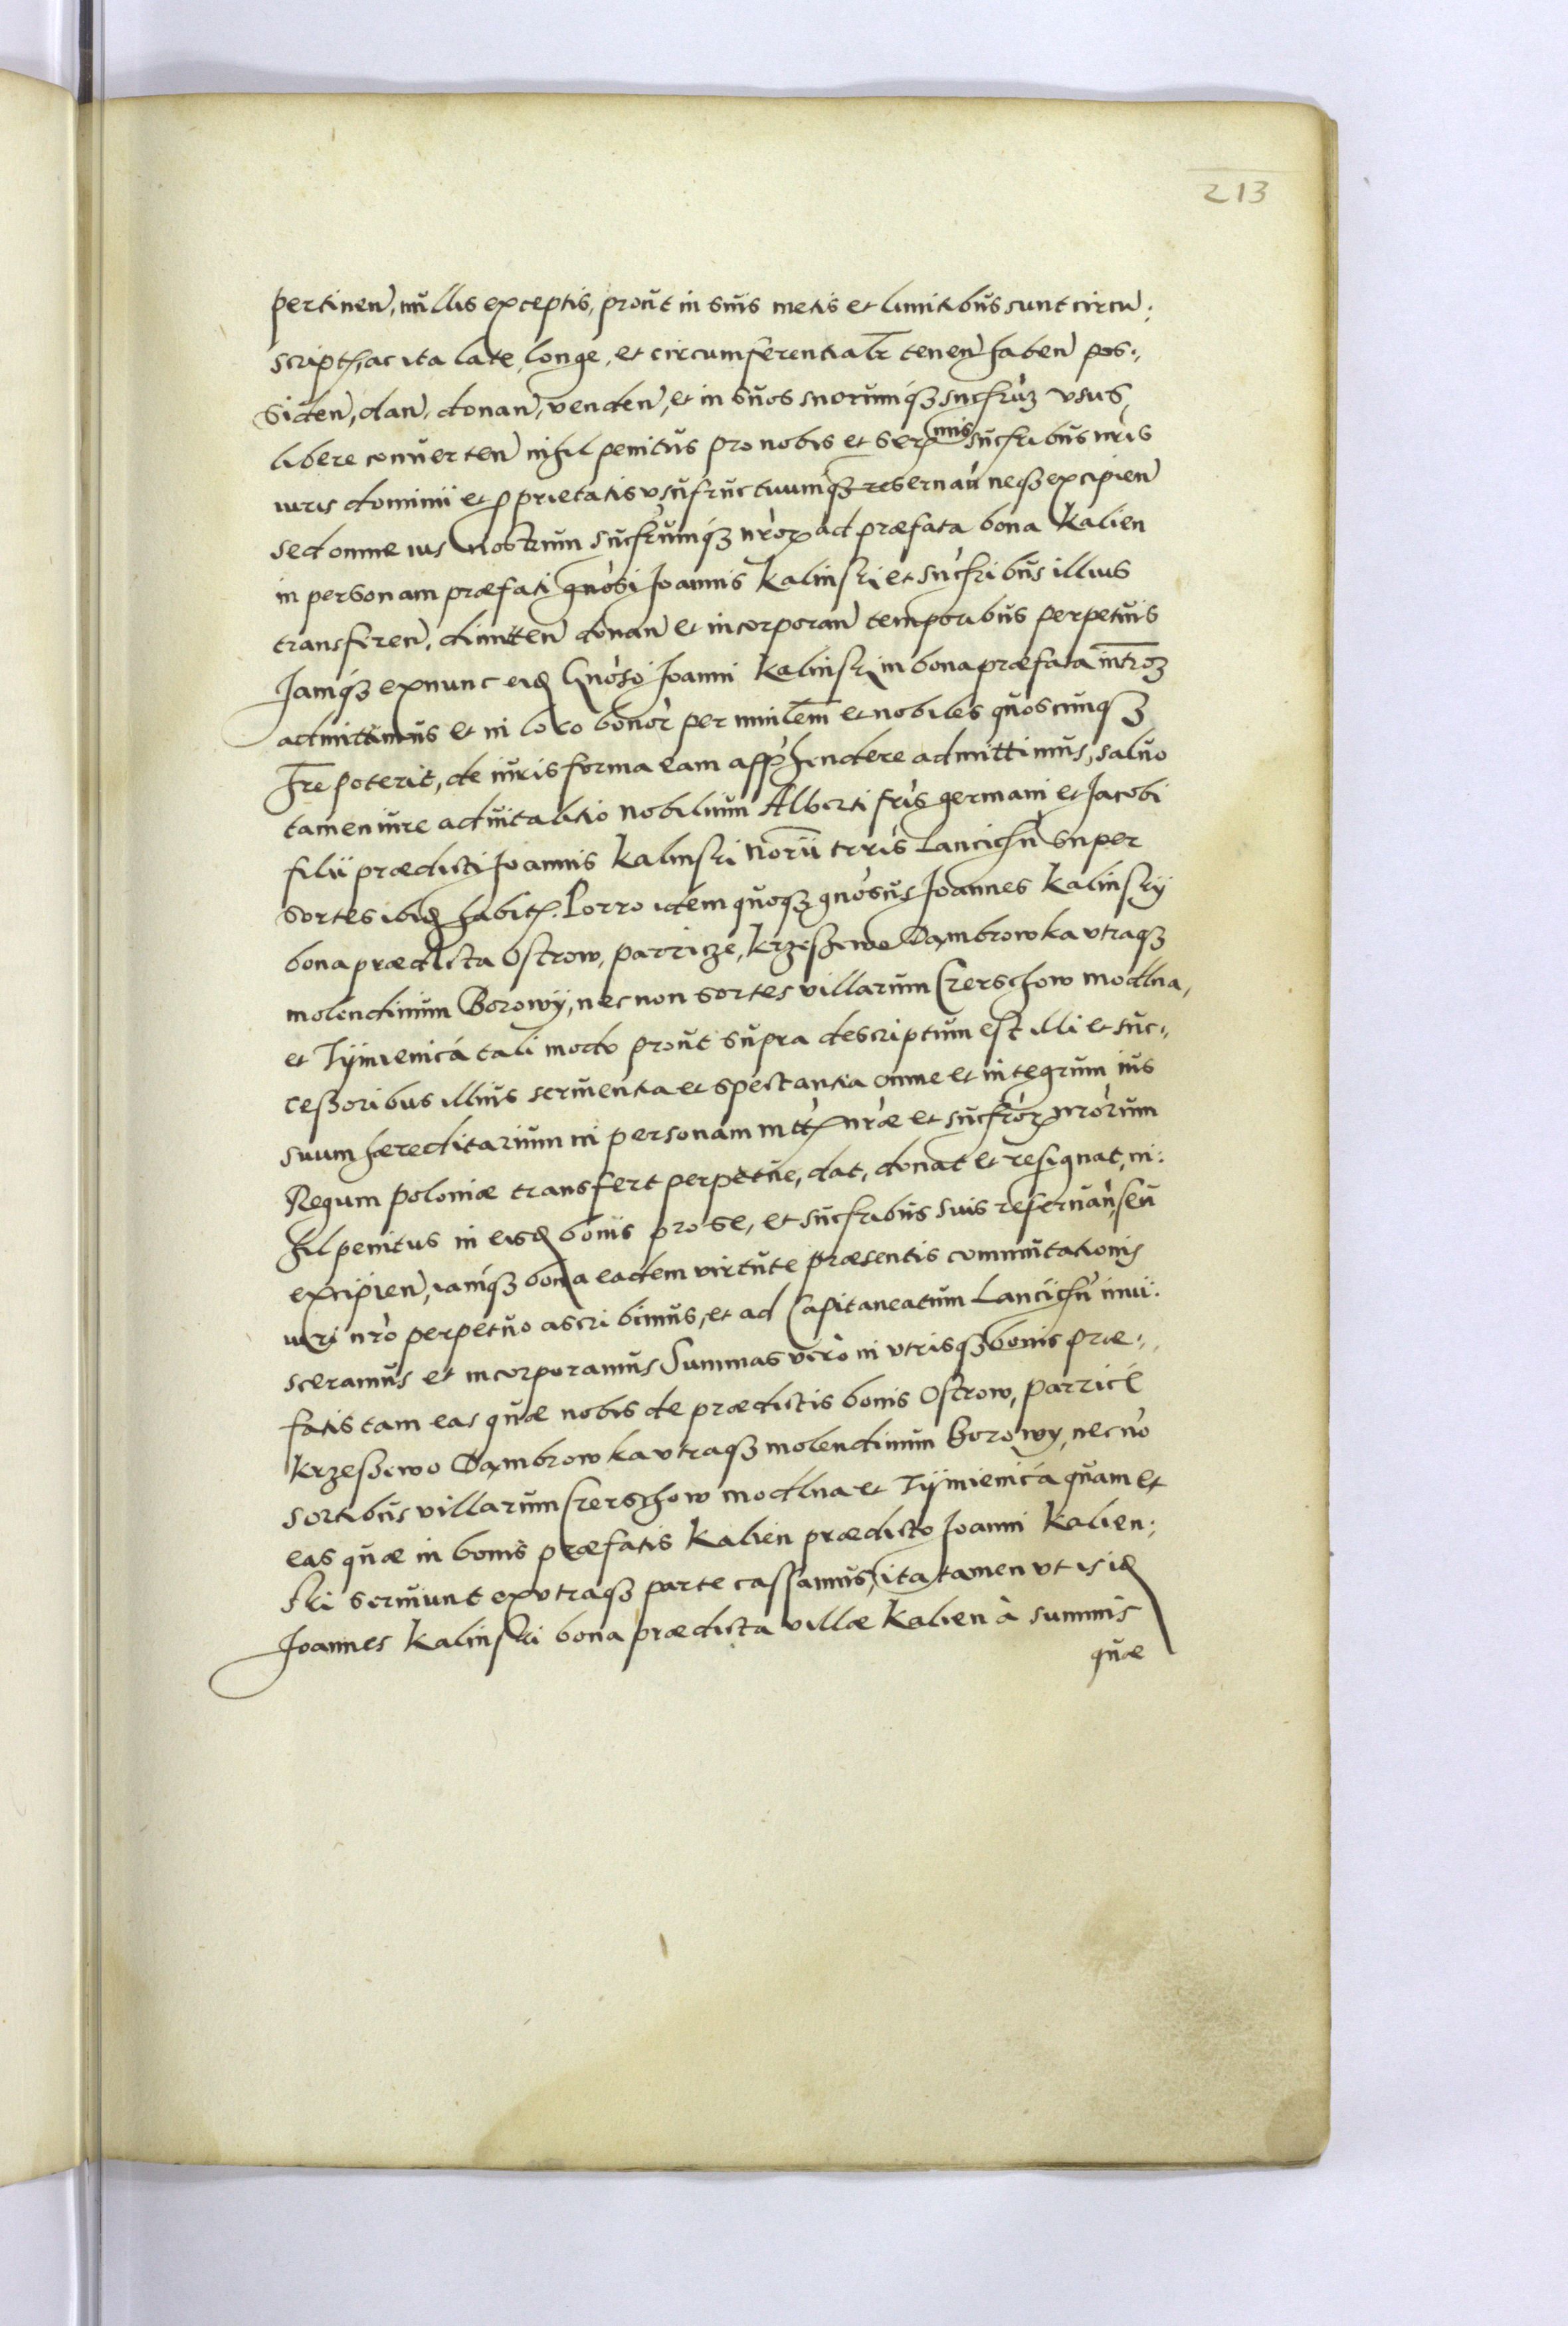 213
pertinen, nullis exceptis, prout in suis metis et limitibus sunt circu:
script, ac ita late, longe, et circumferentialr tenen haben pos:
siden, dan, donan, venden, et in suos suorumq3 succrum usus
libere converten nihil penitus pro nobis et Ser mis succribus nris
iuris dominii et pprietatis usufructuumq3 reservan neq3 excipien
sed omne ius nostrum succrumq3 nror ad præfata bona Kalien
in personam præfati gnosi Joannis Kalinski et succribus illius
transferen, dimitten donan et incorporan temporibus perpetuis
Jamq3 exnunc eid Gnoso Joanni Kalinski in bona præfata introm
admittimus et in loco bonor per minlem et nobiles quoscunq3
hre poterit, de iuris forma eam apphendere admittimus, salvo
tamen iure advitalitio nobilium Alberti fris germani et Jacobi
filii prædicti Joannis Kalinski norū trris Lancichn super
sortes ibid habit. Porro idem quoq3 gnosus Joannes Kalinskÿ
bona prædicta Ostrow, parzicze, Krzeßewo Dambrowka utraq3
molendinum Borowÿ, nec non sortes villarum Czerschow modlna,
et Tÿmienica tali modo prout supra descriptum est illi et suc:
ceßoribus illius servientia et spectantia omne et integrum ius
suum hæreditarium in personam mtt nræ et succror nrorum
Regum poloniæ transfert perpetue, dat, donat et resignat, ni:
hil penitus in eisd bonis pro se, et succribus suis reservan, seu
excipien, iamq3 bona eadem virtute præsentis commutationis
iuri nro perpetuo ascribimus, et ad Capitaneatum Lancichn invi:
sceramus et incorporamus Summas vero in utrisq3 bonis præ:
fatis tam eas quæ nobis de prædictis bonis Ostrow, parzice
Krzeßewo Dambrowka utraq3 molendinum Borowy, necno
sortibus villarum Czerschow modlna et Tÿmienica quam et
eas quæ in bonis præfatis Kalien prædicto Joanni Kalien:
ski serviunt ex utraq3 parte cassamus, ita tamen ut is id
Joannes Kalinski bona prædicta villæ Kalien à summis
quæ